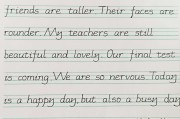 friends are taller. Their faces are
rounder. My teachers are still
beautiful and lovely. Our final test
is coming. We are so nervous. Today
is a happy day, but also a busy day